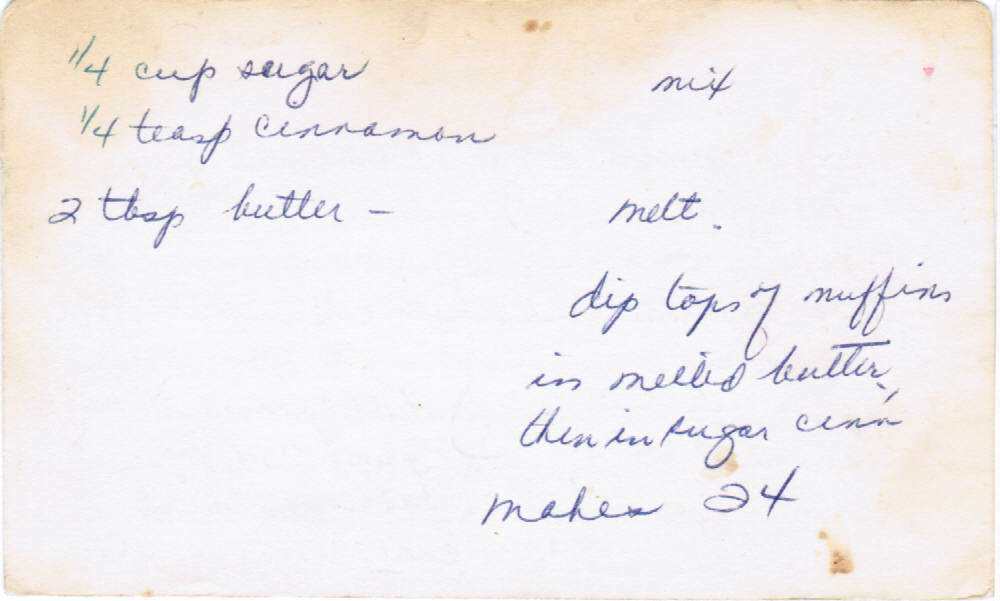 1/4 cup sugar mix
1/4 teasp cinnamon
2 tbsp butter - melt.
dip tops of muffins
in melted butter,
then in sugar cinn
makes 24